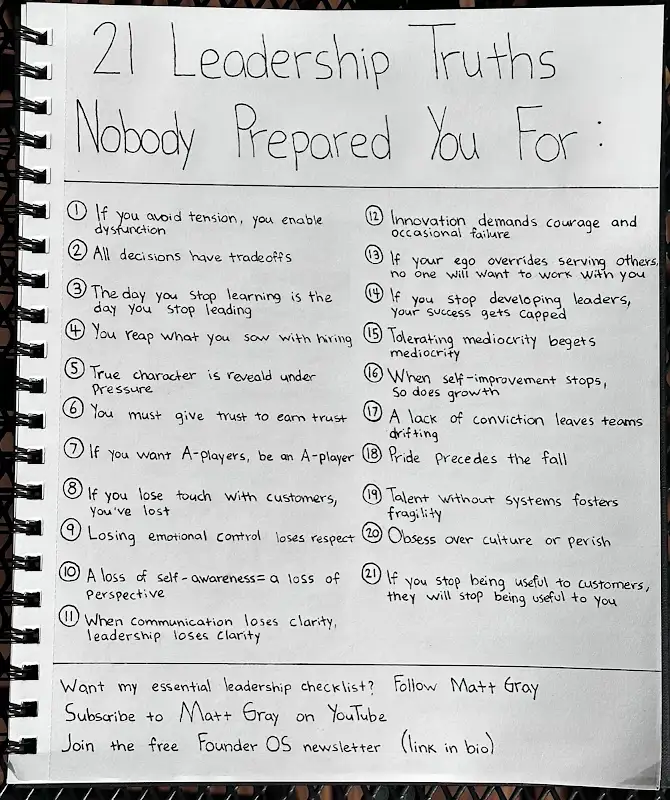 21 Leadership Truths
Nobody Prepared You For:
1 If you avoid tension, you enable
dysfunction
2 All decisions have tradeoffs
3 The day you stop learning is the
day you stop leading
4 You reap what you sow with hiring
5 True character is reveald under
Pressure
6 You must give trust to earn trust
7 If you want A-players, be an A-player
8 If you lose touch with customers,
you've lost
9 Losing emotional control loses respect
10 A loss of self-awareness = a loss of
perspective
11 When communication loses clarity,
leadership loses clarity
12 Innovation demands courage and
occasional failure
13 If your ego overrides serving others,
no one will want to work with you
14 If you stop developing leaders,
your success gets capped
15 Tolerating mediocrity begets
mediocrity
16 When self-improvement stops,
So does growth
17 A lack of conviction leaves teams
drifting
18 Pride precedes the fall
19 Talent without systems fosters
fragility
20 Obsess over culture or perish
21 If you stop being useful to customers,
they will stop being useful to you
Want my essential leadership checklist? Follow Matt Gray
Subscribe to Matt Gray on YouTube
Join the free Founder OS newsletter (link in bio)